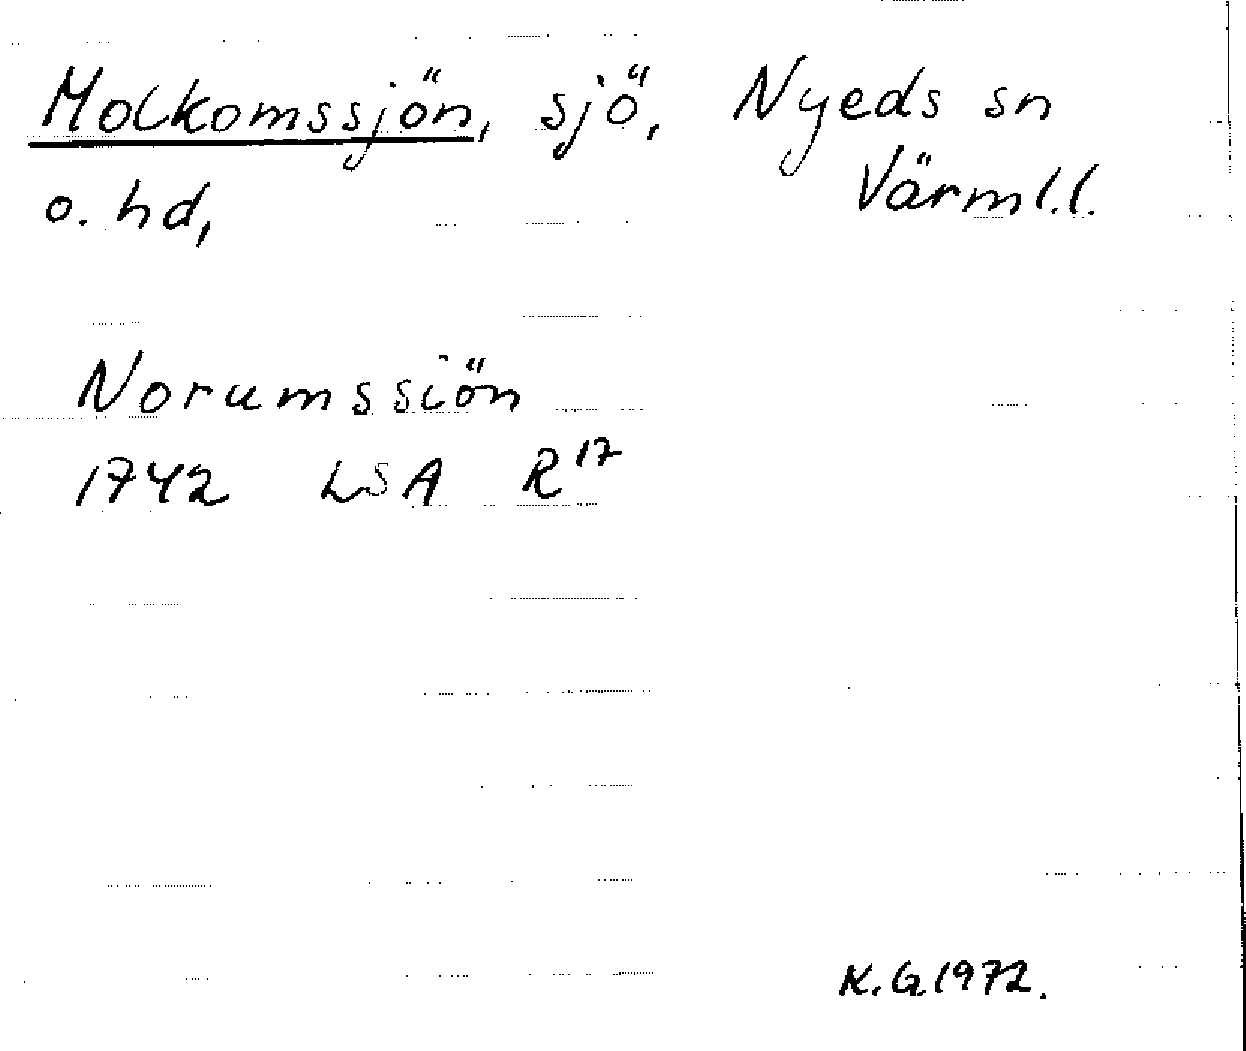 Molkomssjön, sjö, Nyeds sn
o. hd, Värml.l.
Norumssiön
1742 LSA R17
K.G 1972.